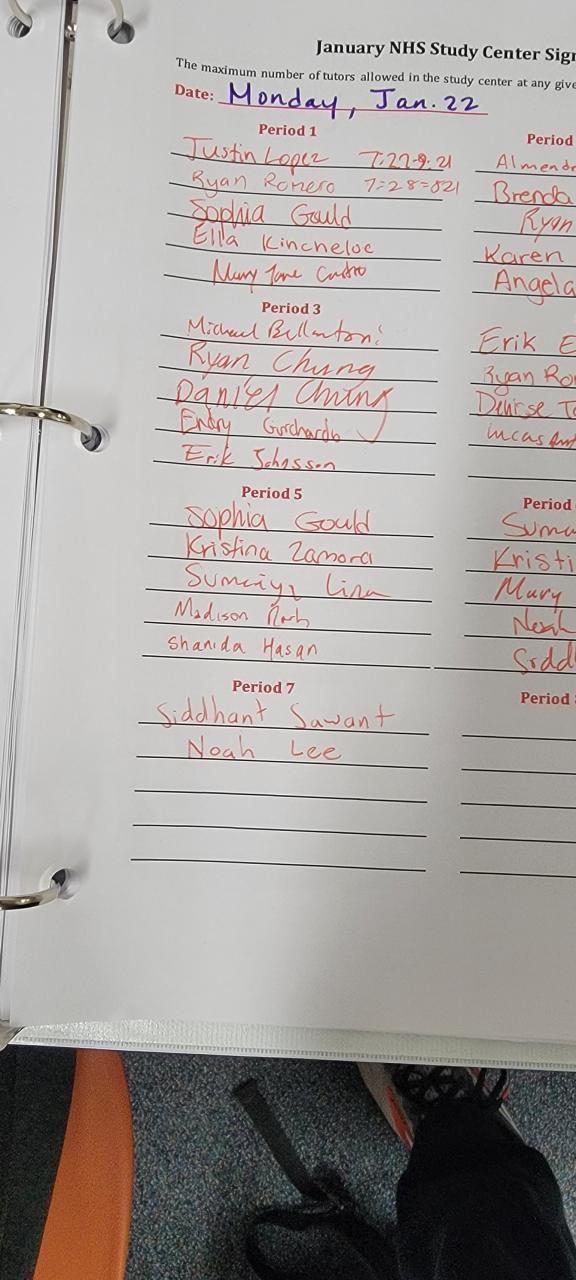 January NHS Study Center Sign
The maximum number of tutors allowed in the study center at any give
Date: Monday, Jan. 22
Period 1
Justin Lopez 7:27-9:21
Ryan Romero 7:28-821
Sophia Gould
Ella Kincheloe
Mary Jane Castro
Period 3
Michael
Ryan Chung
Daniel Chung
Erik Johnsson
Period 5
Sophia Gould
Kristina Zamora
Sumaiya
Madison
Shanida Hasan
Period 7
Siddhant Sawant
Noah Lee
Period
Almend
Brenda
Ryan
Karen
Angela
Erik E
Ryan Ro
Denise T
Lucas
Period
Suma
Kristi
Mary
Noah
Sidd
Period